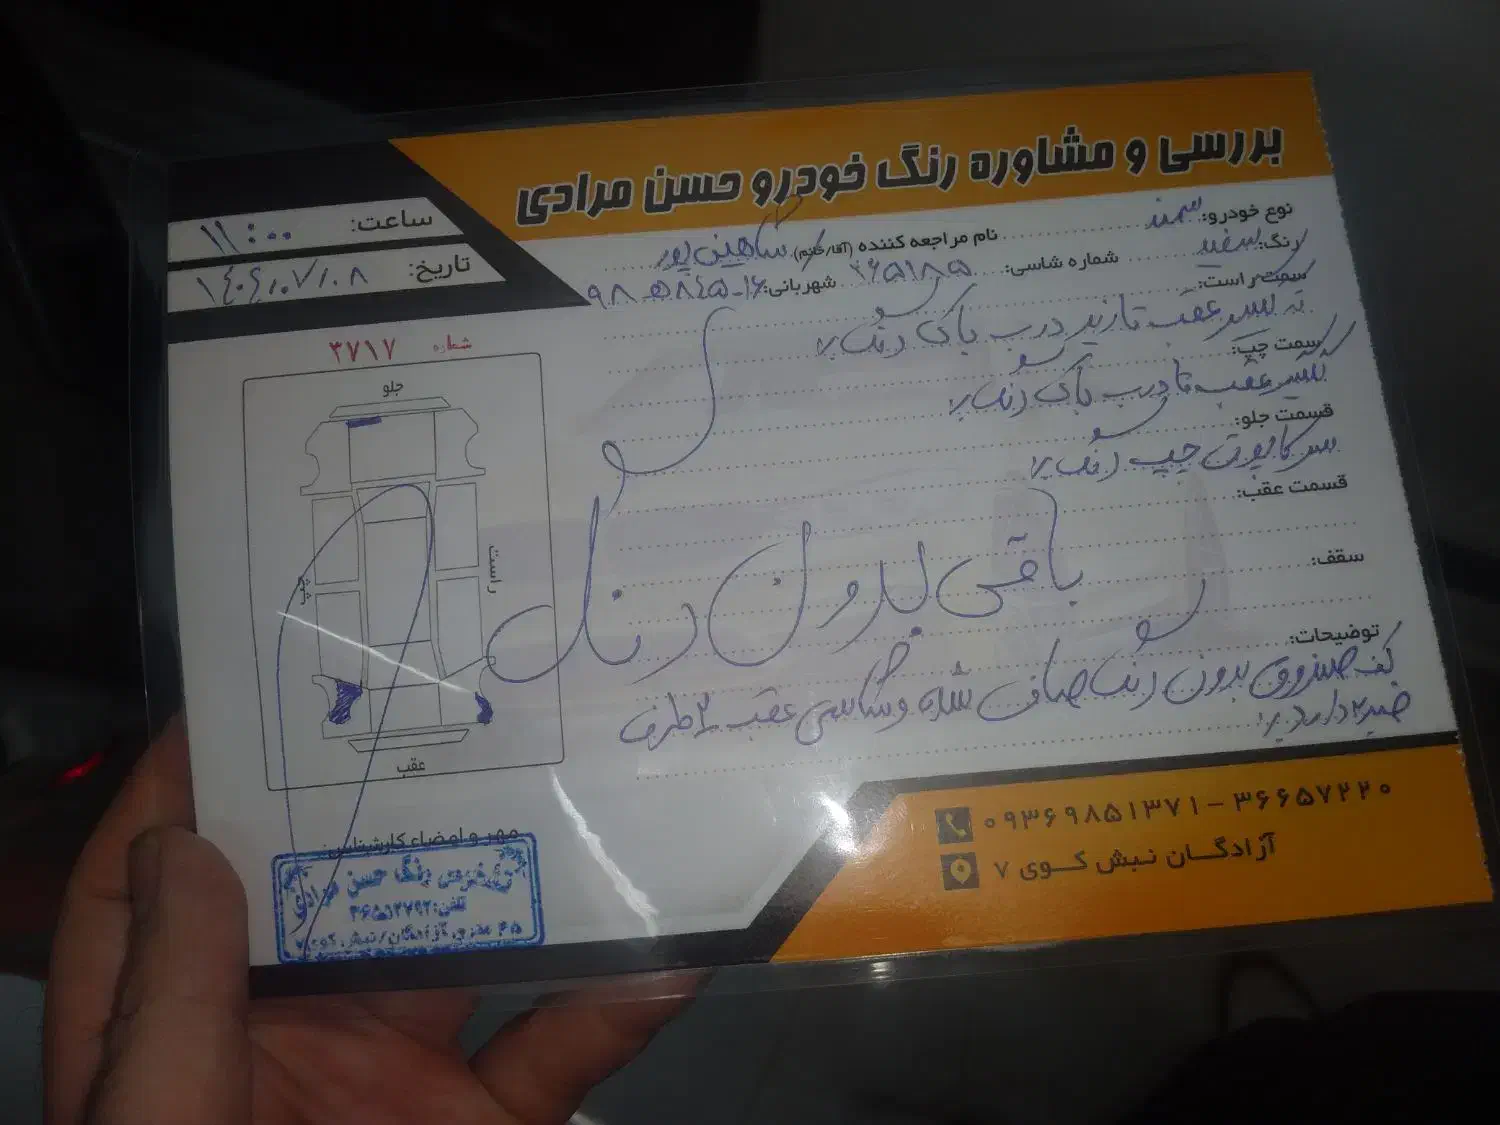 بررسی و مشاوره رنگ خودرو حسن مرادی
ساعت: ۱۱:۰۰
تاریخ: ۱۴۰۴/۰۷/۰۸
نوع خودرو: سمند نام مراجعه کننده (آقا/خانم): شاهین پور
رنگ: سفید شماره شاسی: ۲۶۵۱۸۵ شهربانی:
سمت راست:
ته گلگیر عقب تا زیر درب باک رنگ
سمت چپ:
گلگیر عقب تا درب باک رنگ
قسمت جلو:
سر کاپوت چپ رنگ
قسمت عقب:
باقی بدون رنگ
سقف:
توضیحات:
کف صندوق بدون رنگ صافی شده و شاسی عقب ۲ طرف
ضربه دارد
شماره ۳۷۱۷
جلو
راست
چپ
عقب
مهر و امضاء کارشناس:
حسن مرادی
تلفن: ۳۶۶۵۱۲۷۹۲
۴۵ متری آزادگان/نبش کوی ۷
۰۹۳۶۹۸۵۱۳۷۱ - ۳۶۶۵۷۲۲۰
آزادگان نبش کوی ۷